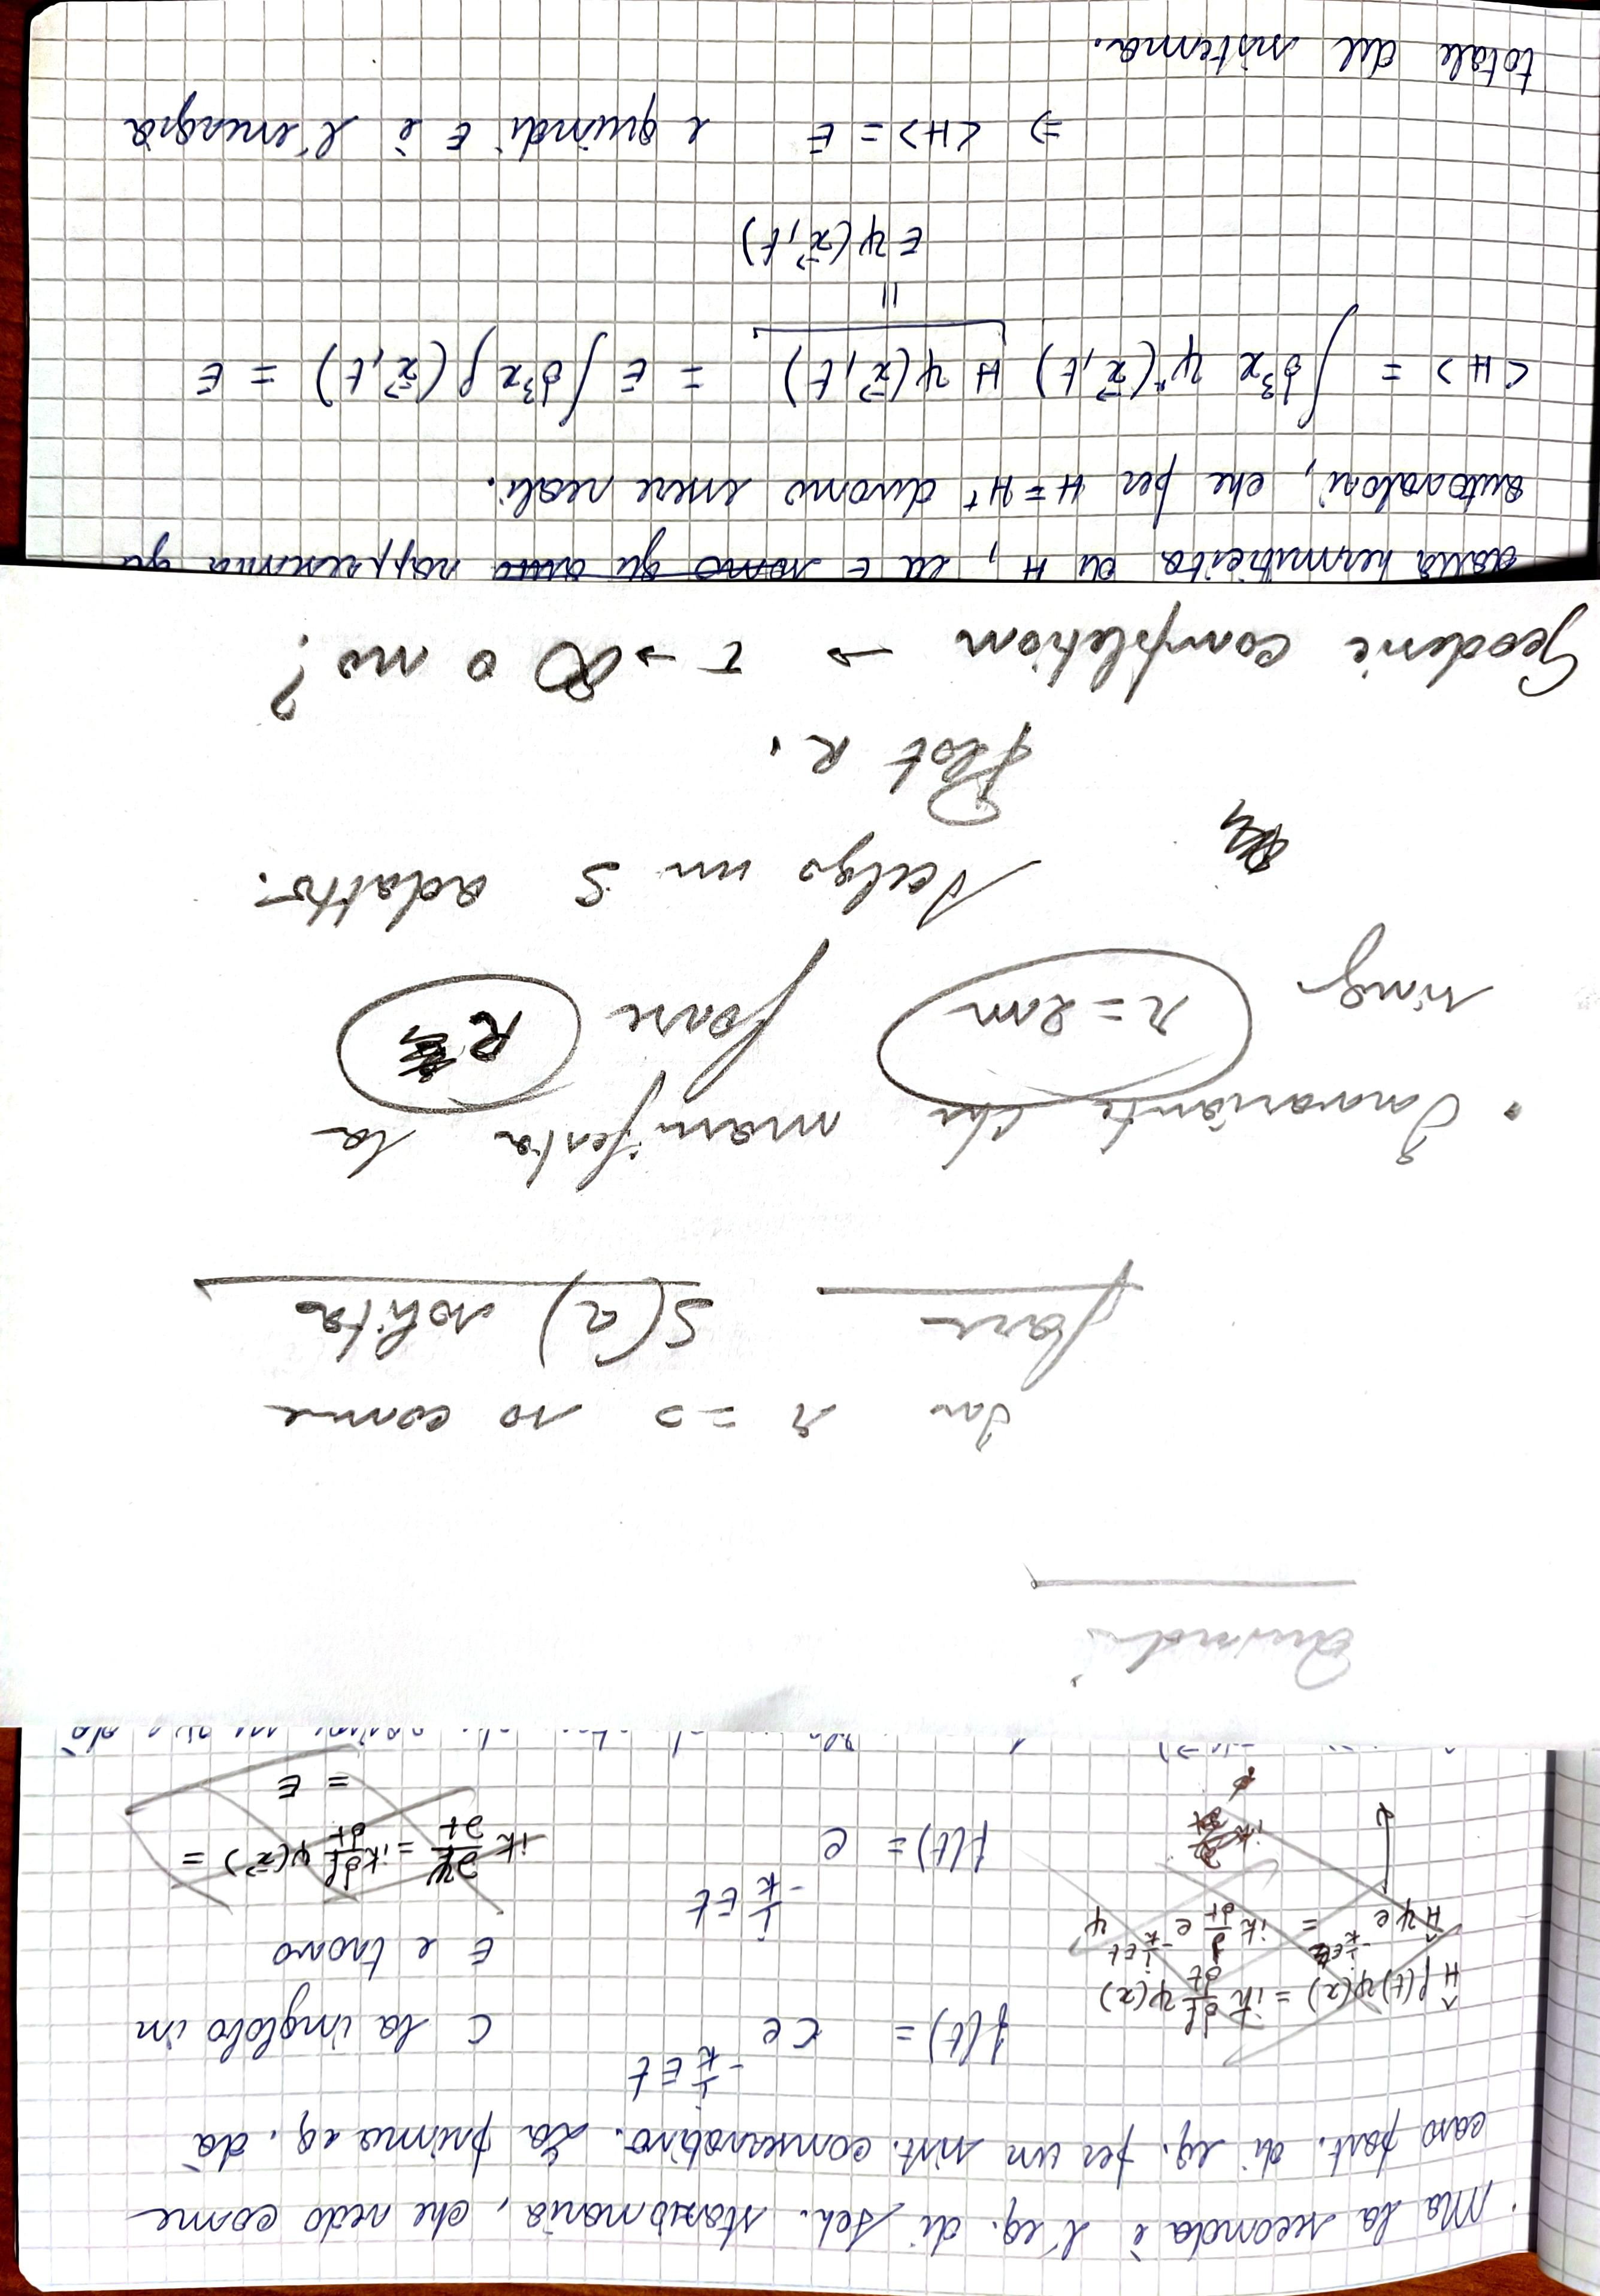 Ma la seconda è l'eq. di Sch. stazionaria, che vedo come
caso part. di eq. per un sist. conservativo. La prima eq. dà
f(t) = c e^{-i/ħ Et}
C la inglobo in
E e trovo
Ĥ f(t) ψ(x) = iħ df/dt ψ(x)
Ĥ ψ e^{-i/ħ Et} = iħ d/dt e^{-i/ħ Et} ψ
f(t) = e^{-i/ħ Et}
iħ ∂ψ/∂t = iħ df/dt ψ(x⃗) =
= E
Quindi
In r => so come
fare S(r) solita
• Invariante che manifesta la
sing. r = 2m forse R
Scelgo un S adatto.
Plot R.
Geodesic completion → τ → ∞ o no?
dalla hermiticità di H, ed E sono gli auto rappresenta gli
autovalori, che per H = H⁺ devono essere reali.
<H> = ∫d³x ψ*(x⃗,t) H ψ(x⃗,t) = E ∫d³x ρ(x⃗,t) = E
=
Eψ(x⃗,t)
⇒ <H> = E e quindi E è l'energia
totale del sistema.